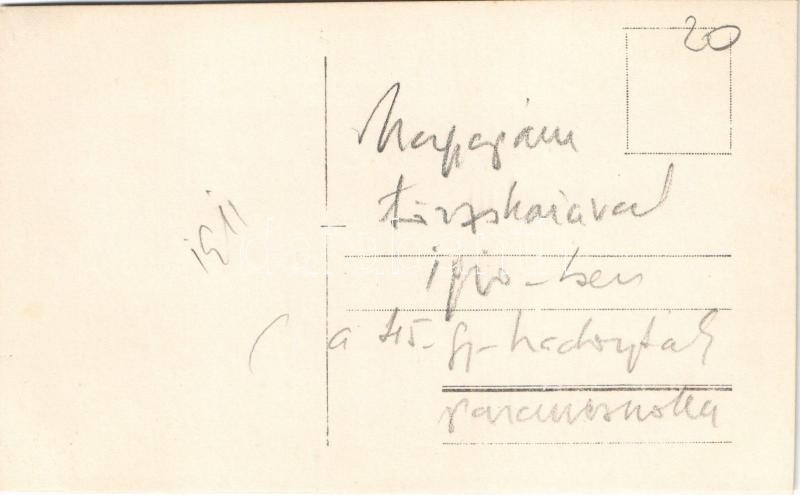 20
Nagyapám
törzskarával
1910-ben
a 45. gy. hadosztály
parancsnoka
1911